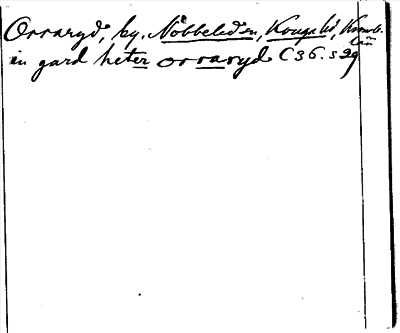 Orraryd, by. Nöbbeled sn, Konga hd, Kronob. län
en gard heter orraryd C 36. s 29